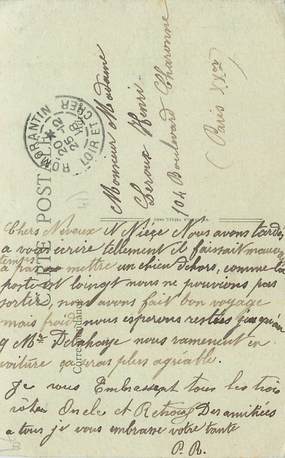 CARTE POSTALE
Correspondance
ROMORANTIN
LOIR ET CHER
Monsieur Madame
Leroux Henri
104 Boulevard Charonne
(Paris XXe)
Chers Neveux et Nièce Nous avons tardez
a vous écrire tellement il faissait mauvais
temps a pas mettre un chien dehors, comme la
poste est loingt nous ne pouvions pas
sortir, nous avons fait bon voyage
mais froid, nous esperons restées jusqu'au
9 Mr Delahaye nous ramenent en
voiture ça seras plus agréable.
Je vous Embrassent tous les trois
Oncle et Des amitiées
a tous je vous embrasse votre tante
P. R.